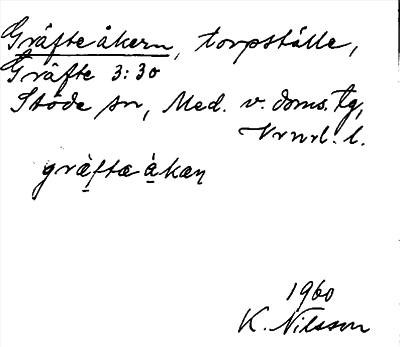 Gräfteåkern, torpställe,
Gräfte 3:30
Stöde sn, Med. v. doms. tg,
Vrnrl. l.
gràftæ àkæṇ
1960
K. Nilsson